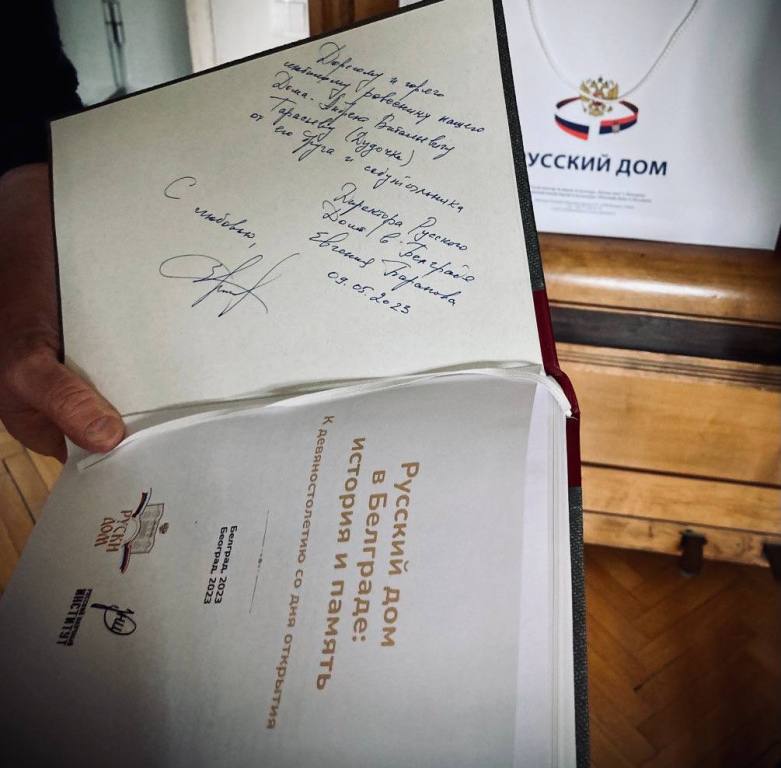 Дорогому и горячо
любимому ровеснику нашего
Дома - Андрею Витальевичу
Тарасьеву (Дудочке)
от его друга и собутыльника
Директора Русского
Дома в Белграде
Евгения Баранова
09.05.2023
С любовью,
Русский дом
в Белграде:
история и память
К девяностолетию со дня открытия
Белград, 2023
Београд, 2023
РУСКИ
ДОМ
ИНСТИТУТ
РУССКИЙ ДОМ